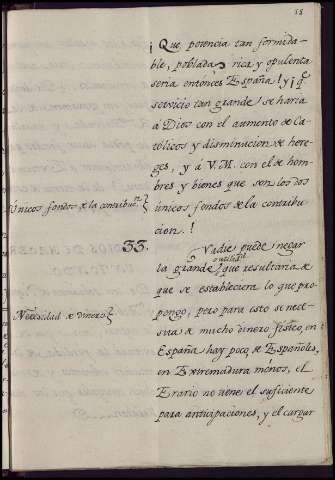 ¡Que potencia tan formida-
ble, poblada, rica y opulenta
seria entonces España! y ¡q.e
servicio tan grande se haria
a Dios con el aumento de Ca-
tolicos y disminucion de here-
ges, y á V.M. con el de hom-
bres y bienes que son los dos
Unicos fondos de la contribuc.n
únicos fondos de la contribu-
cion.!
33. Nadie puede negar
la grande utilidad que resultaria de
que se estableciera lo que pro-
Necesidad de dinero
pongo, pero para esto se nece-
sita de mucho dinero fisico, en
España hay poco, de Españoles,
en Extremadura menos, el
Erario no tiene el suficiente
para anticipaciones, y el cargar